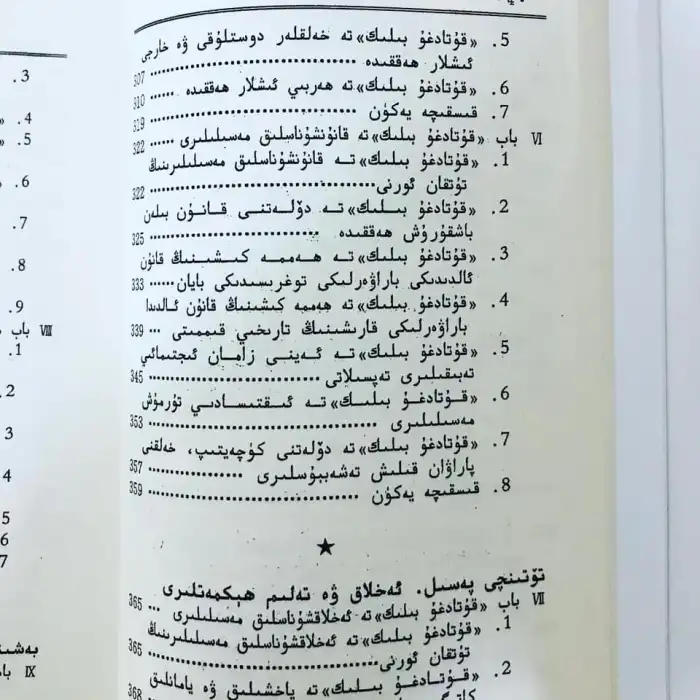 5. «قۇتادغۇ بىلىك» تە خەلقلەر دوستلۇقى ۋە خارجى
ئىشلار ھەققىدە ........................ 307
6. «قۇتادغۇ بىلىك» تە ھەربىي ئىشلار ھەققىدە ...... 310
7. قىسقىچە يەكۈن ........................ 319
Ⅵ باب «قۇتادغۇ بىلىك» تە قانۇنشۇناسلىق مەسىلىلىرى ...... 322
1. «قۇتادغۇ بىلىك» تە قانۇنشۇناسلىق مەسىلىلىرىنىڭ
تۇتقان ئورنى ........................ 322
2. «قۇتادغۇ بىلىك» تە دۆلەتنى قانۇن بىلەن
باشقۇرۇش ھەققىدە ........................ 325
3. «قۇتادغۇ بىلىك» تە ھەممە كىشىنىڭ قانۇن
ئالدىدىكى باراۋەرلىكى توغرىسىدىكى بايان ...... 333
4. «قۇتادغۇ بىلىك» تە ھەممە كىشىنىڭ قانۇن ئالدىدا
باراۋەرلىكى قارىشىنىڭ تارىخىي قىممىتى ... 339
5. «قۇتادغۇ بىلىك» تە ئەينى زامان ئىجتىمائىي
تەبىقىلىرى تەپسىلاتى ........................ 345
6. «قۇتادغۇ بىلىك» تە ئىقتىسادىي تۇرمۇش
مەسىلىلىرى ........................ 353
7. «قۇتادغۇ بىلىك» تە دۆلەتنى كۈچەيتىپ، خەلقنى
پاراۋان قىلىش تەشەببۇسلىرى ........................ 357
8. قىسقىچە يەكۈن ........................ 359
★
تۆتىنچى پەسىل. ئەخلاق ۋە تەلىم ھېكمەتلىرى
Ⅶ باب «قۇتادغۇ بىلىك» تە ئەخلاقشۇناسلىق مەسىلىلىرى ... 365
1. «قۇتادغۇ بىلىك» تە ئەخلاقشۇناسلىق مەسىلىلىرىنىڭ
تۇتقان ئورنى ........................ 365
2. «قۇتادغۇ بىلىك» تە ياخشىلىق ۋە يامانلىق
368
3.
4. »
5. »
6.
7.
8.
9.
Ⅷ باب
1.
2
3
4
5
6
7
بەشى
Ⅸ با